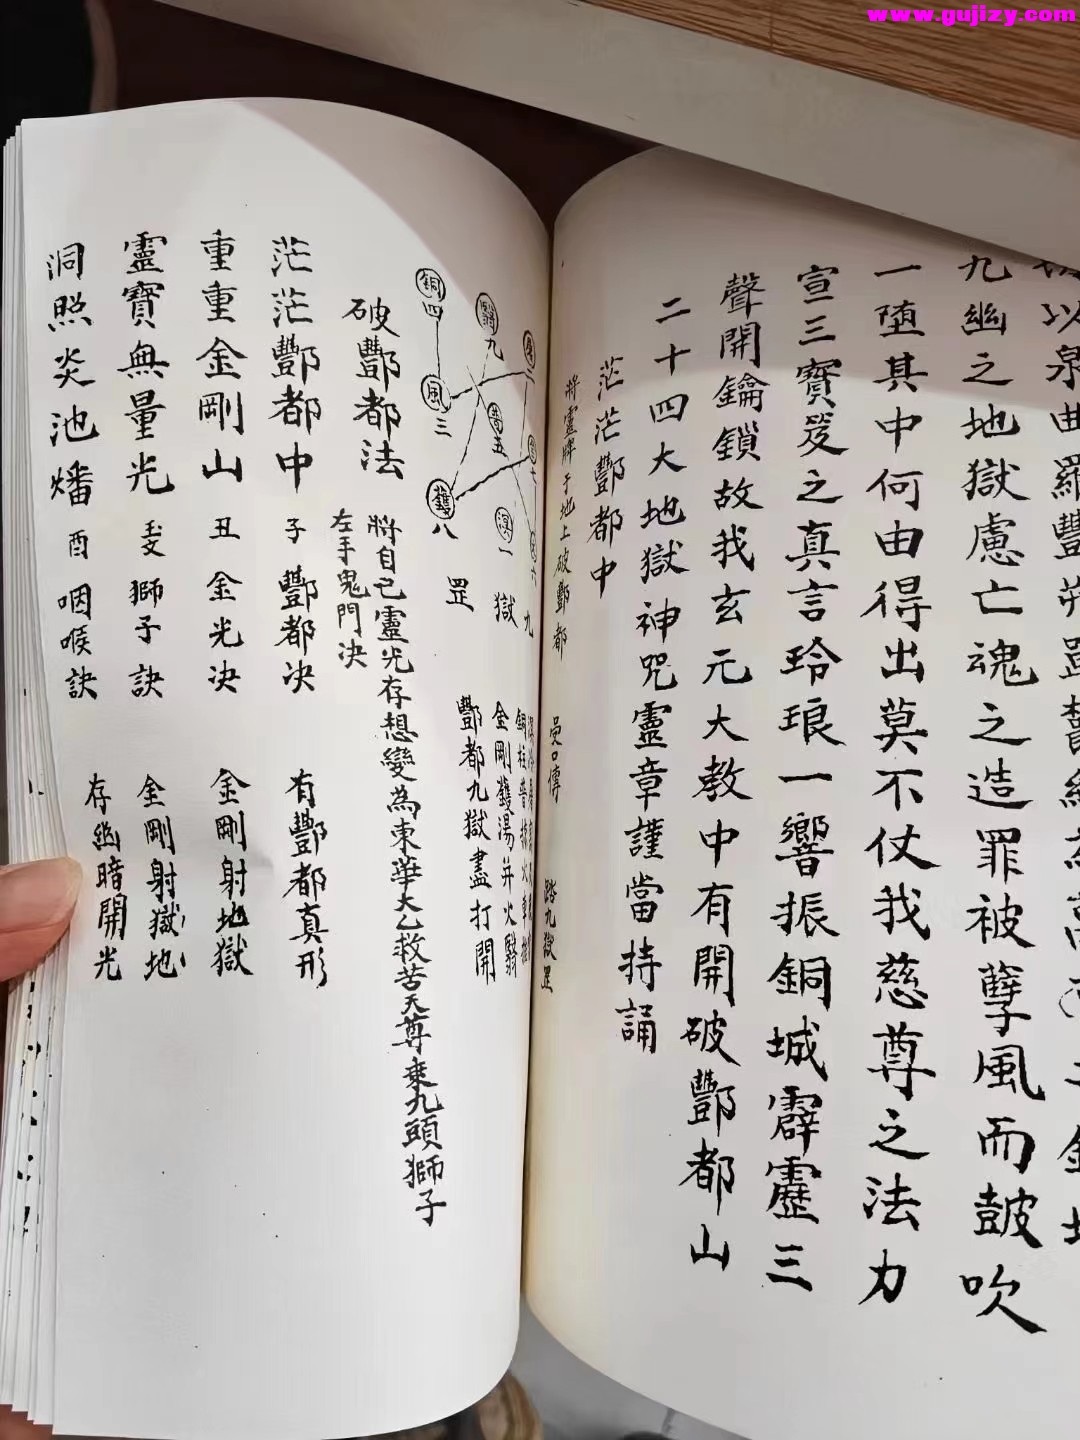 www.gujizy.com
九幽之地獄慮亡魂之造罪被孽風而皷吹
一堕其中何由得出莫不仗我慈尊之法力
宣三寶笈之真言玲琅一響振銅城霹靂三
聲開鑰鎖故我玄元大教中有開破酆都山
二十四大地獄神咒靈章謹當持誦
茫茫酆都中
將靈牌于地上破酆都 口傳 踏九獄罡
銅四
九
二
風三
五
七
鑊八
溟一
六
九
獄
罡
金剛鑊湯并火翳
酆都九獄盡打開
破酆都法 將自己靈光存想變為東華大乙救苦天尊乘九頭獅子
左手鬼門决
茫茫酆都中 子 酆都决 有酆都真形
重重金剛山 丑 金光决 金剛射地獄
靈寶無量光 獅子訣 金剛射獄地
洞照炎池燔 酉 咽喉訣 存幽暗開光